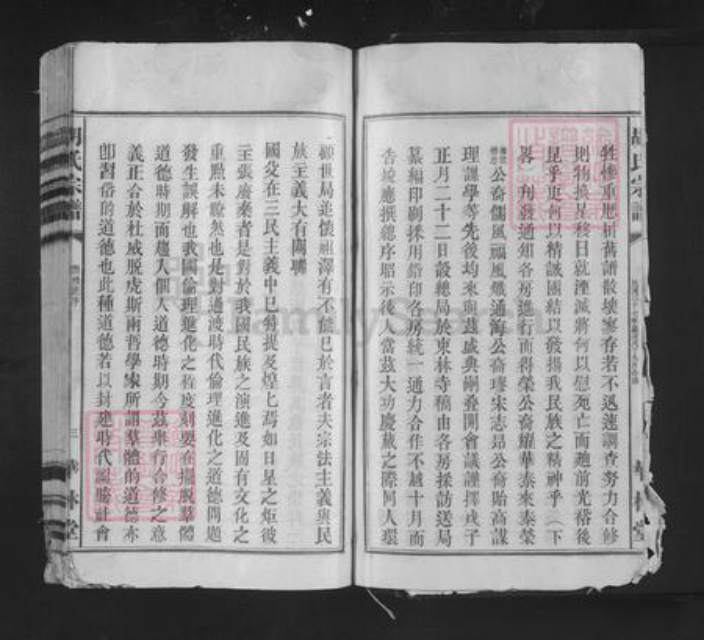 牲慘重慝祈舊譜散壞寥存若不迅速調查努力合修
則物換星移日就湮滅將何以慰死亡而趣前光裕後
昆乎更何以精誠團結以發揚我民族之精神乎（下
畧）刋發通知各房進行而得榮公裔耀華泰來泰榮
公裔儒風福風熾通海公裔璆宋志昂公裔貽高謀
理謀學等先後均來與茲盛典嗣叠開會議謹擇戊子
正月二十二日設總局於東林寺稿由各房採訪送局
纂編印刷採用鉛印各房統一通力合作不越十月而
告竣應撰總序昭示後人當茲大功慶蕆之際同人環
顧世局追懷祖澤有不能已於言者夫宗法主義與民
族主義大有關聯
國父在三民主義中已特提及煌上焉如日星之炬彼
主張廢棄者是對於我國民族之演進及固有文化之
重點未瞭然也是對過渡時代倫理進化之道德問題
發生誤解也我國倫理進化之程度刻要在擺脫羣體
道德時期而趨人個人道德時期今茲舉行合修之意
義正合於杜威脫虎斯兩哲學家所謂羣體的道德亦
卽習俗的道德也此種道德若以封建時代與勝社會
胡氏宗譜
三
華林堂
FamilySearch